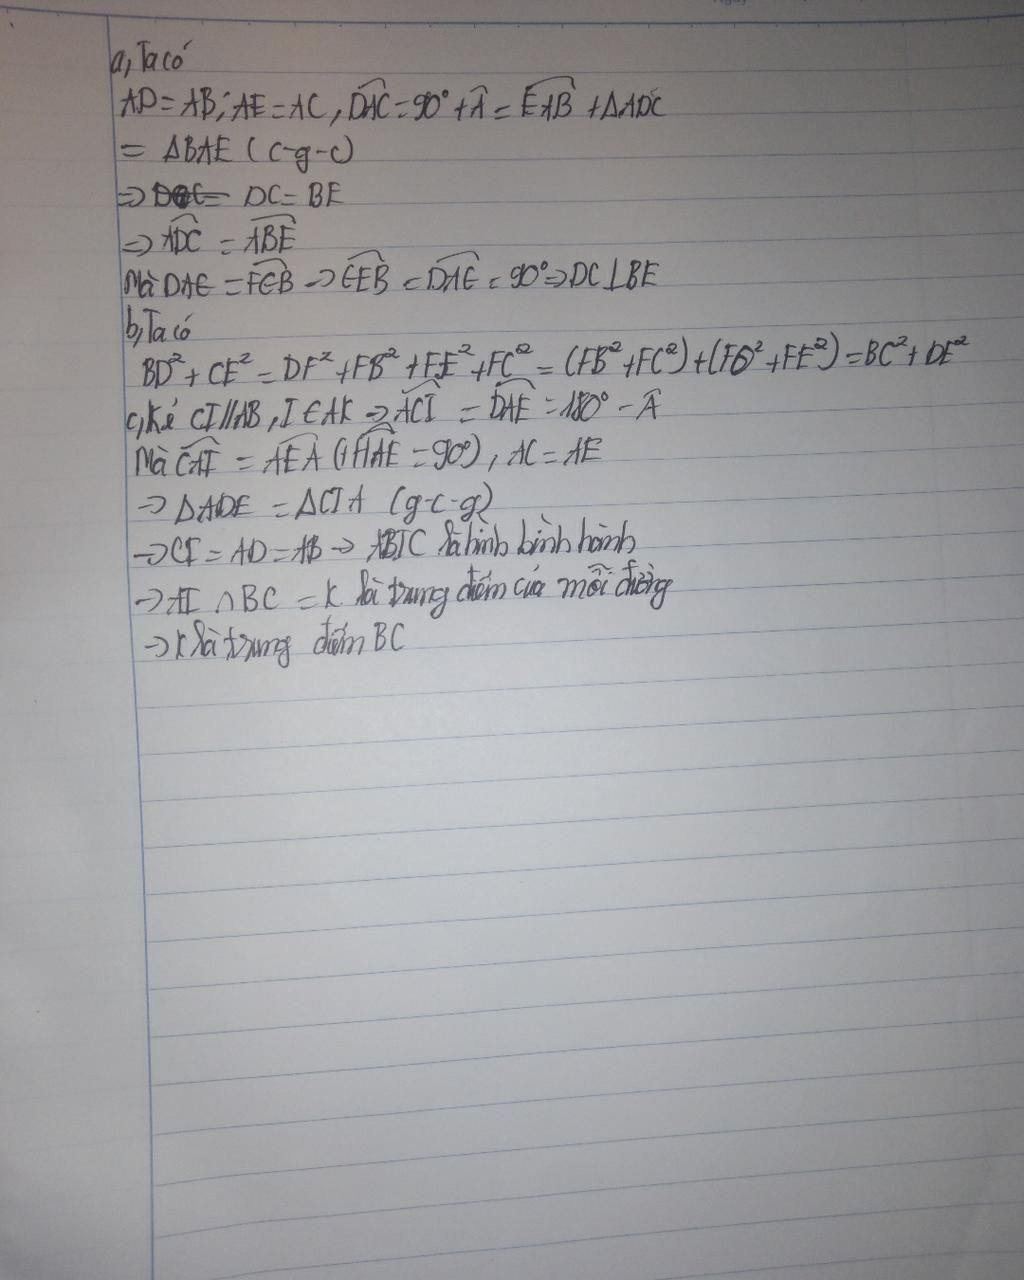 a, Ta có
AD = AB; AE = AC, DAC = 90° + Â = EAB + ΔADC
= ΔBAE (c-g-c)
=> DC = BE
=> ADC = ABE
Mà DAE = FEB -> EEB = DAE = 90° => DC ⊥ BE
b, Ta có
BD² + CE² = DF² + FB² + FE² + FC² = (FB² + FC²) + (FD² + FE²) = BC² + DE²
c, Kẻ CI // AB, I ∈ AK => ACI = DAE = 180° - Â
Mà CAI = AEA (+ HAE = 90°), AC = AE
-> ΔADE = ΔCIA (g-c-g)
-> CI = AD = AB -> ABIC là hình bình hành
-> AI ∩ BC = K là trung điểm của mỗi đường
-> K là trung điểm BC